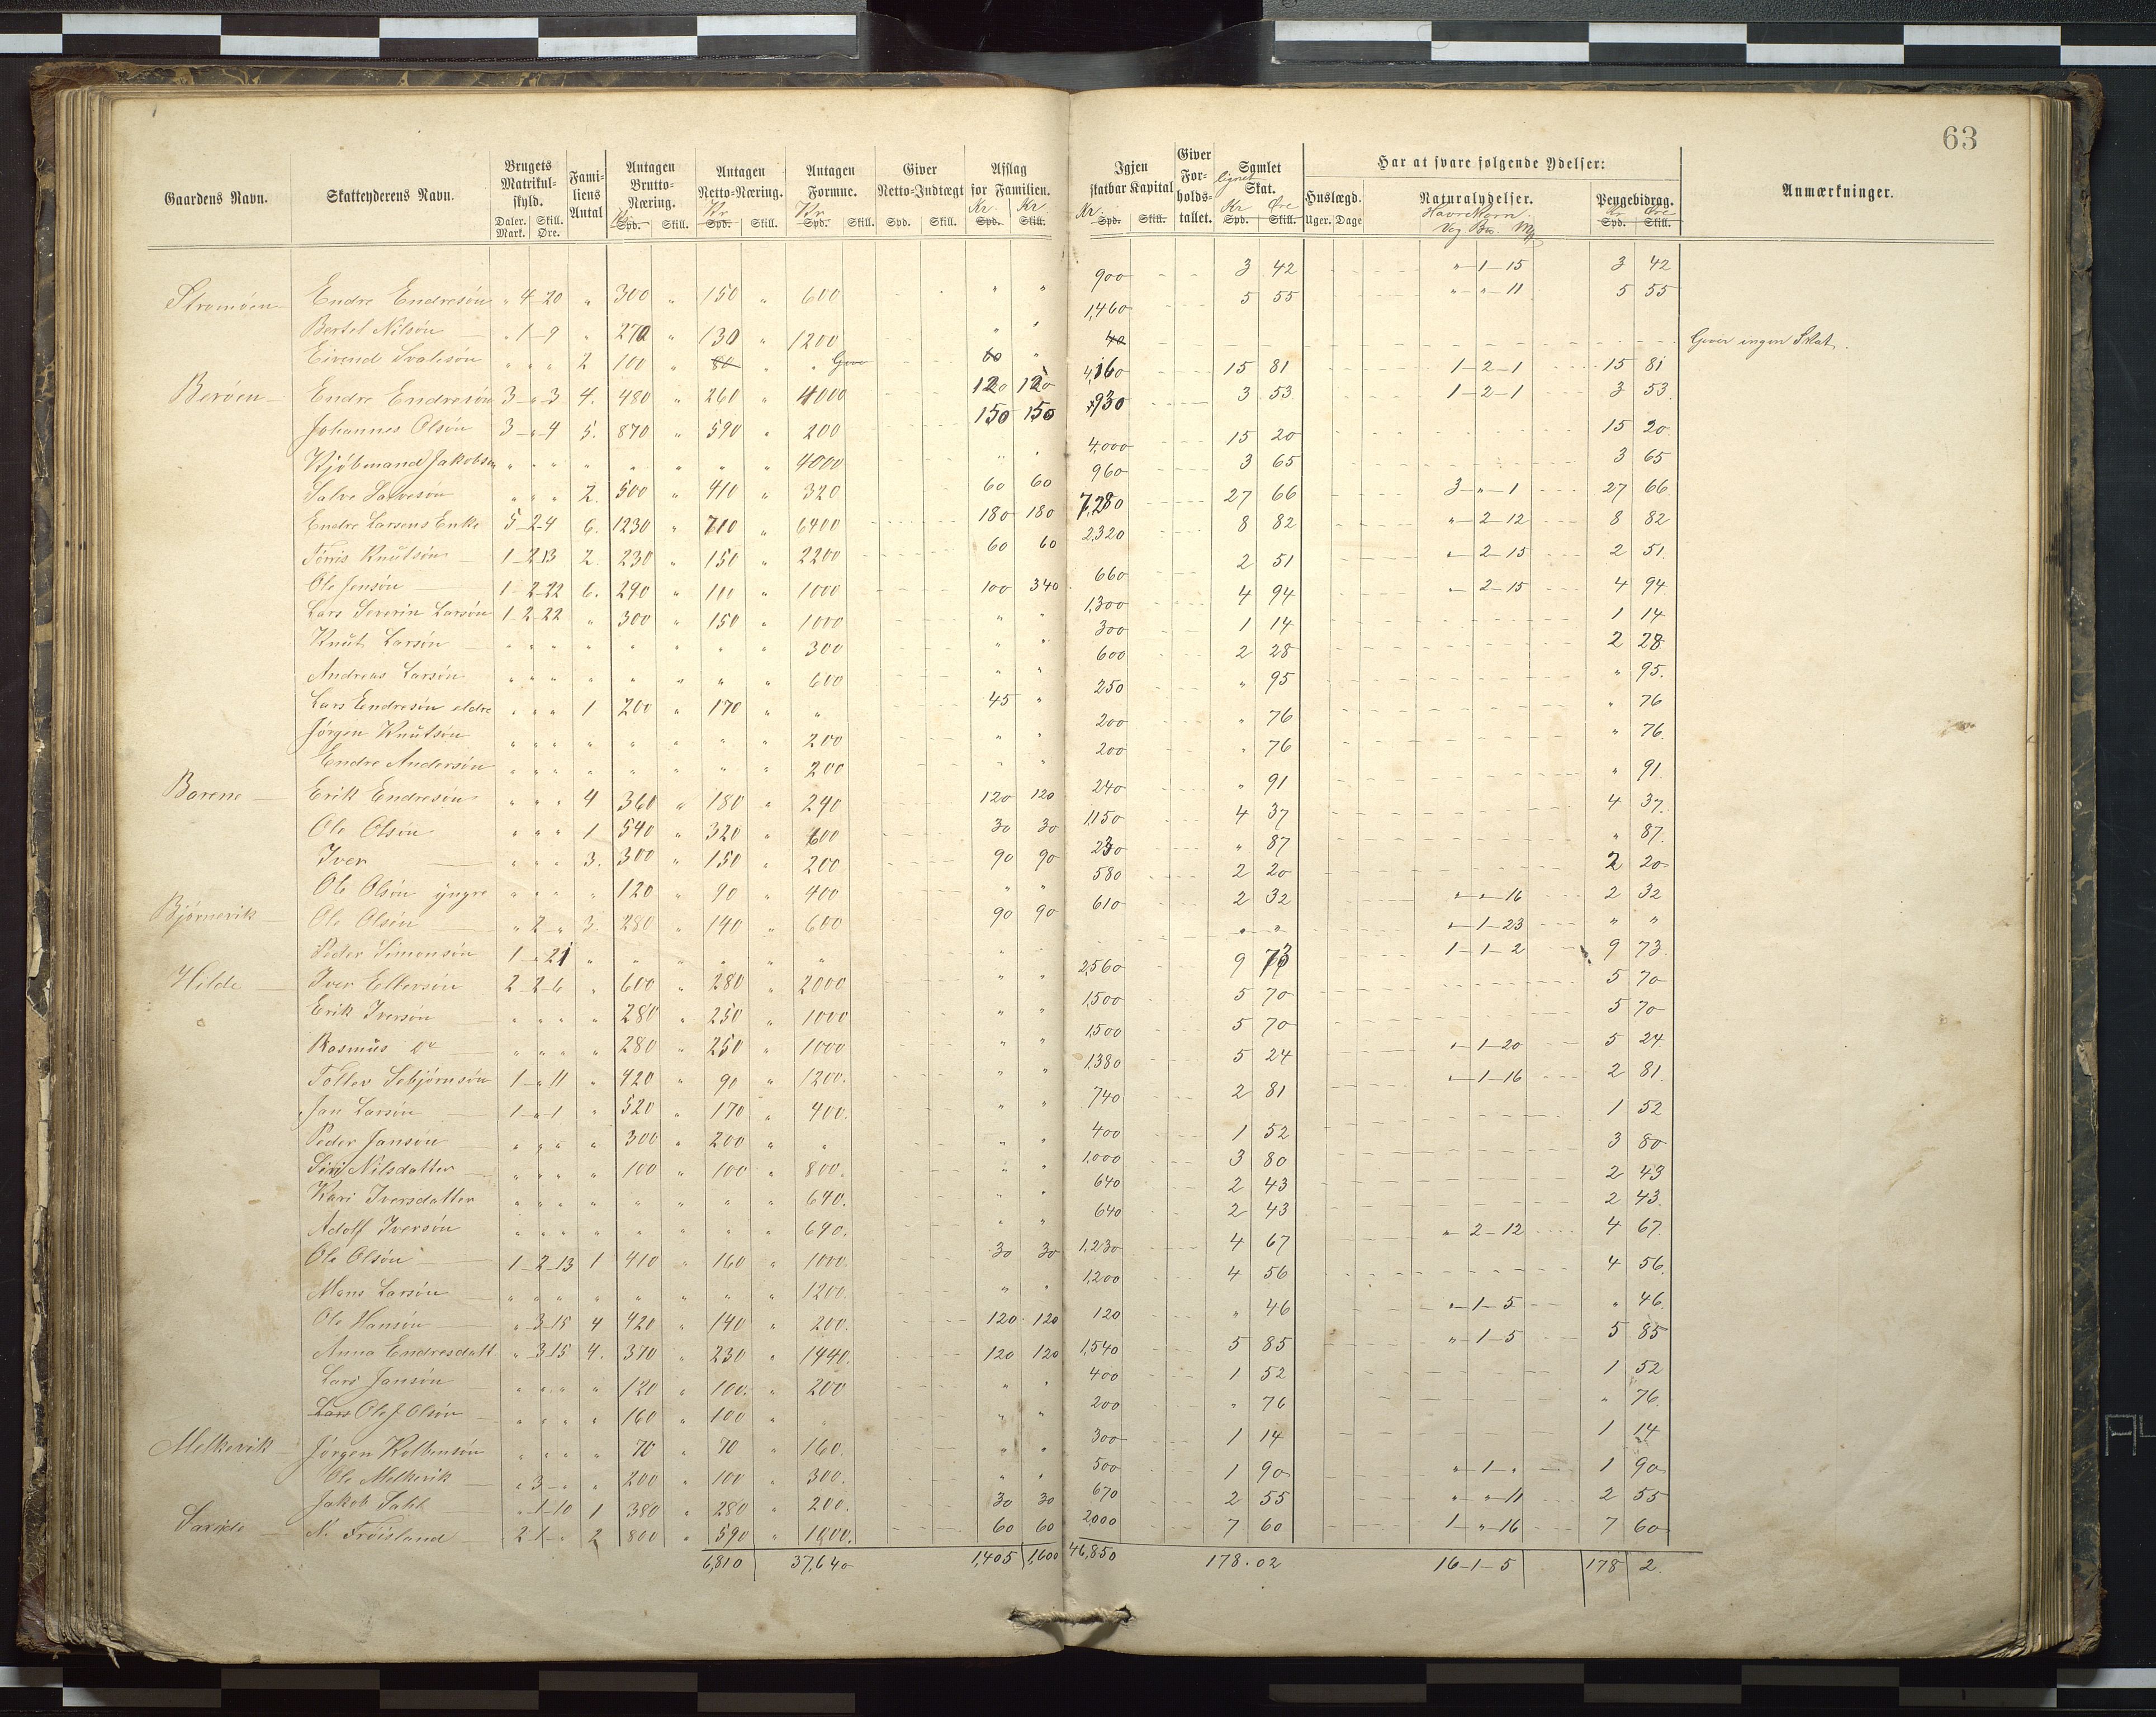 63
Gaardens Navn. Skatteyderens Navn. Brugets Matrikul-skyld. Fami-liens Antal Antagen Brutto-Næring. Antagen Netto-Næring. Antagen Formue. Giver Netto-Indtægt Afslag for Familien. Igjen skatbar Kapital Giver For-holds-tallet. Samlet lignet Skat. Har at svare følgende Ydelser: Anmærkninger.
Huslægd. Naturalydelser. Pengebidrag.
Daler. Skill. Mark. Øre. Kr. Spd. Skill. Kr Spd. Skill. Kr Spd. Skill. Spd. Skill. Kr Spd. Kr Skill. Kr. Spd. Skill. Kr Spd. Øre Skill. Uger. Dage Havre Korn Vog Bm. Mk Kr Spd. Øre Skill.
Strømøen Endre Endresøn " 4-20 " 300 " 150 " 600 " " 900 3 42 "-1-15 3 42
Bertel Nilsøn " 1-9 " 270 " 130 " 1200 " " 1,460 5 55 "-"-11 5 55
Eivend Ivalsøn " " " 2 100 " 80 " " Giver 60 " 40 Giver ingen Skat.
Berøen Endre Endresøn 3-"-3 4. 480 " 260 " 4000 120 120 4,160 15 81 1-2-1 15 81
Johannes Olsøn 3-"-4 5. 870 " 590 " 200 150 150 930 3 53 1-2-1 3 53
Kjøbmand Jakobsen " " " " " " " " 4000 " " 4,000 15 20 15 20
Salve Salvesøn " " " 2. 500 " 410 " 320 60 60 960 3 65 3 65
Endre Larsens Enke 5-2-4 6. 1230 " 710 " 6400 180 180 7,280 27 66 3-"-1 27 66
Tørris Knutsøn 1-2-13 2. 230 " 150 " 2200 60 60 2,320 8 82 "-2-12 8 82
Ole Jensøn 1-2-22 6. 290 " 100 " 1000 100 340 660 2 51 "-2-15 2 51
Lars Severin Larsøn 1-2-22 " 300 " 150 " 1000 " " 1,300 4 94 "-2-15 4 94
Knut Larsøn " " " " " " " " 300 " " 300 1 14 1 14
Andreas Larsøn " " " " " " " " 600 " " 600 2 28 2 28
Lars Endresøn eldre " " " 1 200 " 170 " " 45 " 250 " 95 " 95.
Jørgen Knutsøn " " " " " " " " 200 " " 200 " 76 " 76
Endre Andersøn " " " " " " " " 200 " " 200 " 76 " 76.
Borene Erik Endresøn " " " 4 360 " 180 " 240 120 120 240 " 91 " 91.
Ole Olsøn " " " 1 540 " 320 " 600 30 30 1,150 4 37 4 37.
Iver " " " 3. 300 " 150 " 200 90 90 230 " 87 " 87.
Ole Olsøn yngre " " " " 120 " 90 " 400 " " 580 2 20 2 20
Bjørnevik Ole Olsøn " 2-" 3. 280 " 140 " 600 90 90 610 2 32 "-"-16 2 32
Peder Simonsøn 1-"-21 " " " " " " " " " " "-1-23 " "
Hilde Iver Ellersøn 2-2-6 " 600 " 280 " 2000 " " 2,560 9 73 1-1-2 9 73
Erik Iversøn " " " " 280 " 250 " 1000 " " 1,500 5 70 5 70
Rasmus do " " " " 280 " 250 " 1000 " " 1,500 5 70 5 70
Tollev Sebjørnsøn 1-"-11 " 420 " 90 " 1200. " " 1,380 5 24 "-1-20 5 24
Jan Larsøn 1-"-1 " 520 " 170 " 400. " " 740 2 81 "-1-16 2 81
Peder Jansøn " " " " 300 " 200 " " " " 400 1 52 1 52
Siri Nilsdatter " " " " 100 " 100 " 800. " " 1,000 3 80 3 80
Kari Iversdatter " " " " " " " " 640. " " 640 2 43 2 43
Adolf Iversøn " " " " " " " " 640. " " 640 2 43 2 43.
Ole Olsøn 1-2-13 1 410 " 160 " 1000. 30 30 1,230 4 67 "-2-12 4 67.
Mons Larsøn " " " " " " " " 1200. " " 1,200 4 56 4 56.
Ole Hansøn " 3-15 4 420 " 140 " 200. 120 120 120 " 46 "-1-5 " 46.
Anna Endresdatt " 3-15 4. 370 " 230 " 1440. 120 120 1,540 5 85 "-1-5 5 85
Lars Jansøn " " " " 120 " 100. " 200 " " 400 1 52 1 52
Lars Ole J. Olsøn " " " " 160 " 100 " " " " 200 " 76 " 76.
Melkevik Jørgen Kolbensøn " " " " 70 " 70 " 160. " " 300 1 14 1 14
Ole Melkevik " 3-" " 200 " 100 " 300. " " 500 1 90 "-1-" 1 90
Jakob Sahl " 1-10 1 380 " 280 " 200. 30 30 670 2 55 "-"-11 2 55
N. Frøisland 2-1-" 2 800 " 590 " 1600. 60 60 2,000 7 60 1-"-16 7 60
6,810 37,640 1,405 1,600 46,850 178.02 16-1-5 178 2.